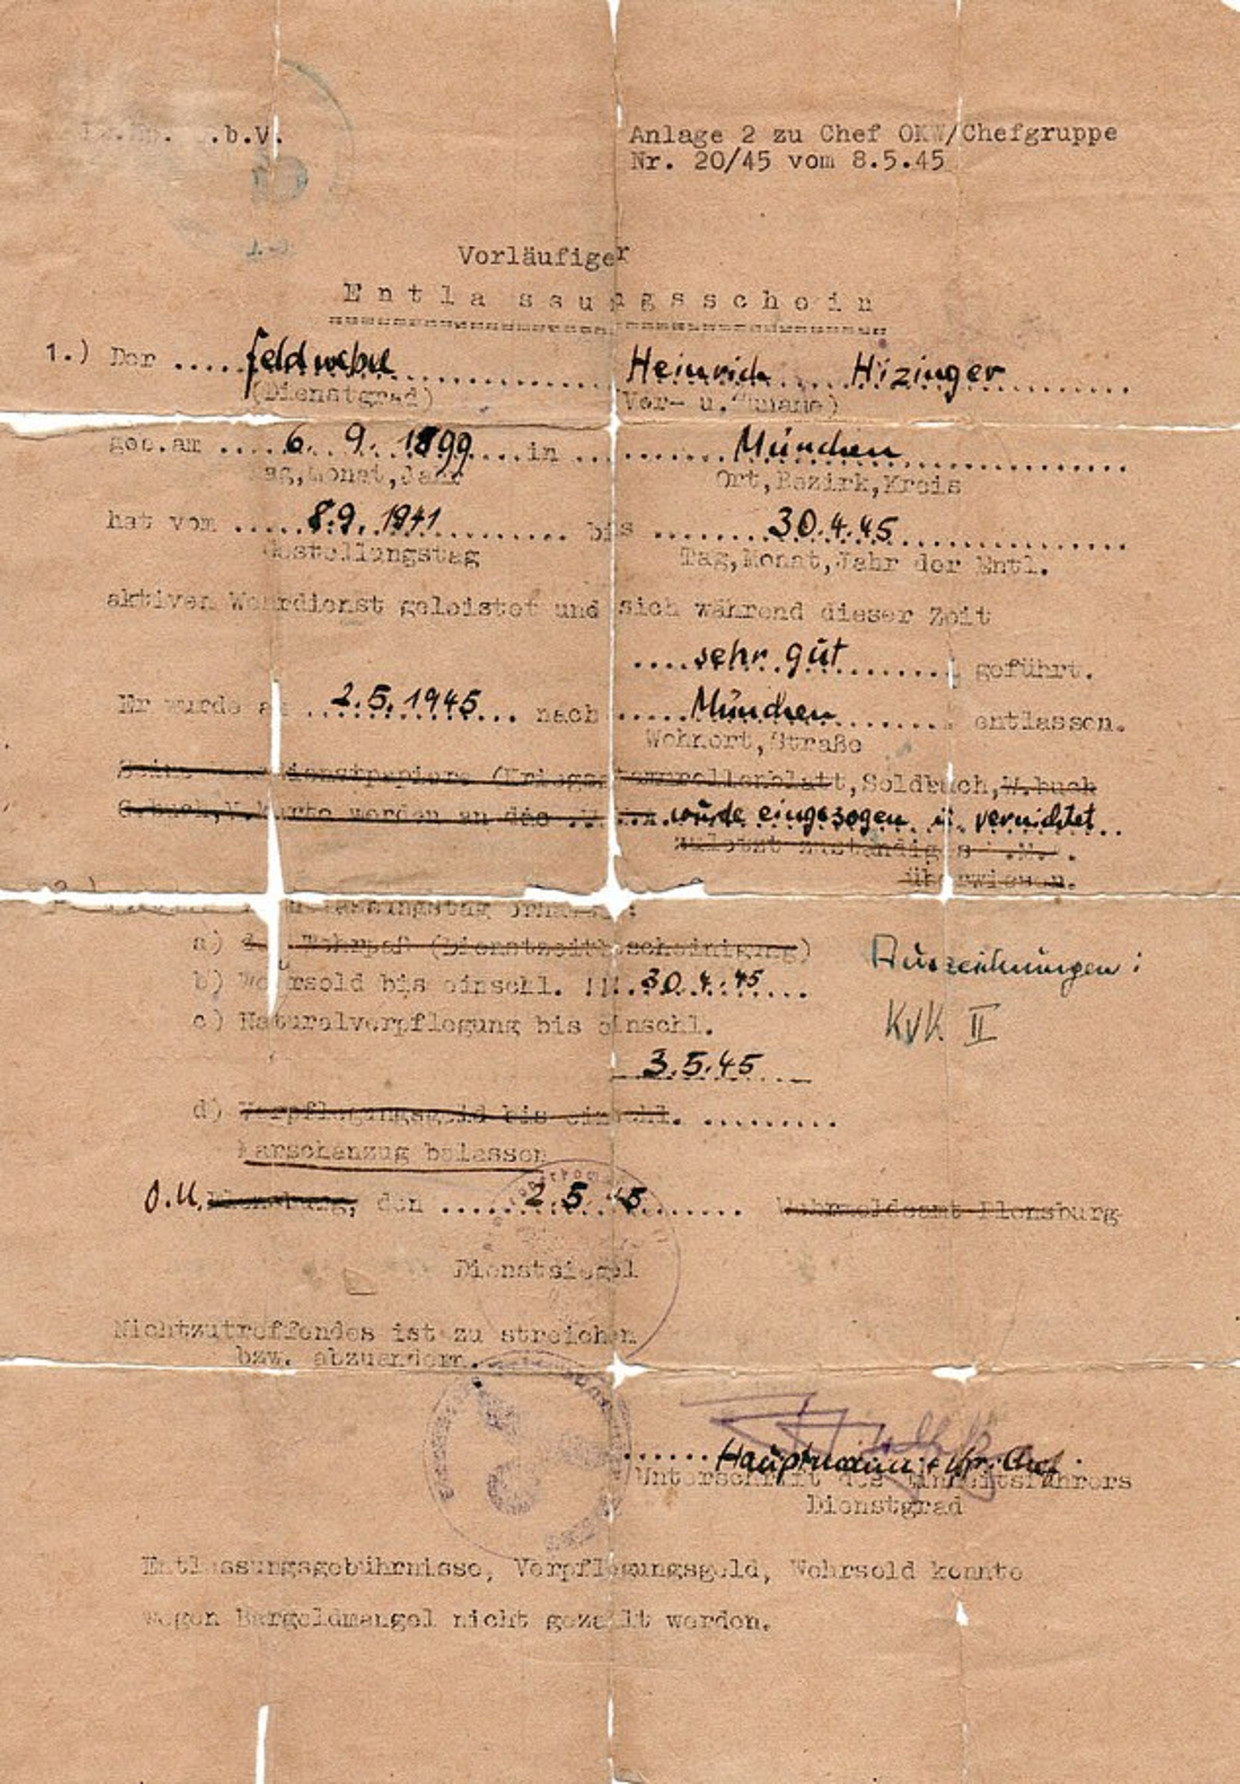 .b.V.
Anlage 2 zu Chef OKW/Chefgruppe
Nr. 20/45 vom 8.5.45
Vorläufiger
Entlassungsschein
1.) Der .... Feldwebel ............ Heinrich .... Hizinger ............
(Dienstgrad) (Vor- u. Zuname)
geb.am .... 6. 9. 1899 .... in .......... München ................
Tag,Monat,Jahr Ort,Bezirk,Kreis
hat vom ..... 8.9. 1941 .......... bis ........ 30.4.45 ................
Gestellungstag Tag,Monat,Jahr der Entl.
aktiven Wehrdienst geleistet und sich während dieser Zeit
.... sehr gut ........ geführt.
Er wurde am .. 2.5.1945 ... nach ..... München ........ entlassen.
Wohnort,Straße
Dienstpapiere (Kriegsstammrollenblatt, Soldbuch, W.buch
G.buch, V.Karte werden an das .. wurde eingezogen u. vernichtet ..
zuletzt zuständiges W.M.A.
überwiesen.
2.) Entlassungstag erhalten:
a) den Wehrpaß (Dienstzeitbescheinigung)
b) Wehrsold bis einschl. ... 30.4.45 ...
c) Naturalverpflegung bis einschl.
3.5.45
d) Verpflegungsgeld bis einschl. ........
Marschanzug belassen
Auszeichnungen:
KVK II
O.U. Flensburg, den .... 2.5.45 ....... Wehrmeldeamt Flensburg
Dienstsiegel
Nichtzutreffendes ist zu streichen
bzw. abzuändern.
...... Hauptmann u. Chef .
Unterschrift des Einheitsführers
Dienstgrad
Entlassungsgebührnisse, Verpflegungsgeld, Wehrsold konnte
wegen Bargeldmangel nicht gezahlt werden.